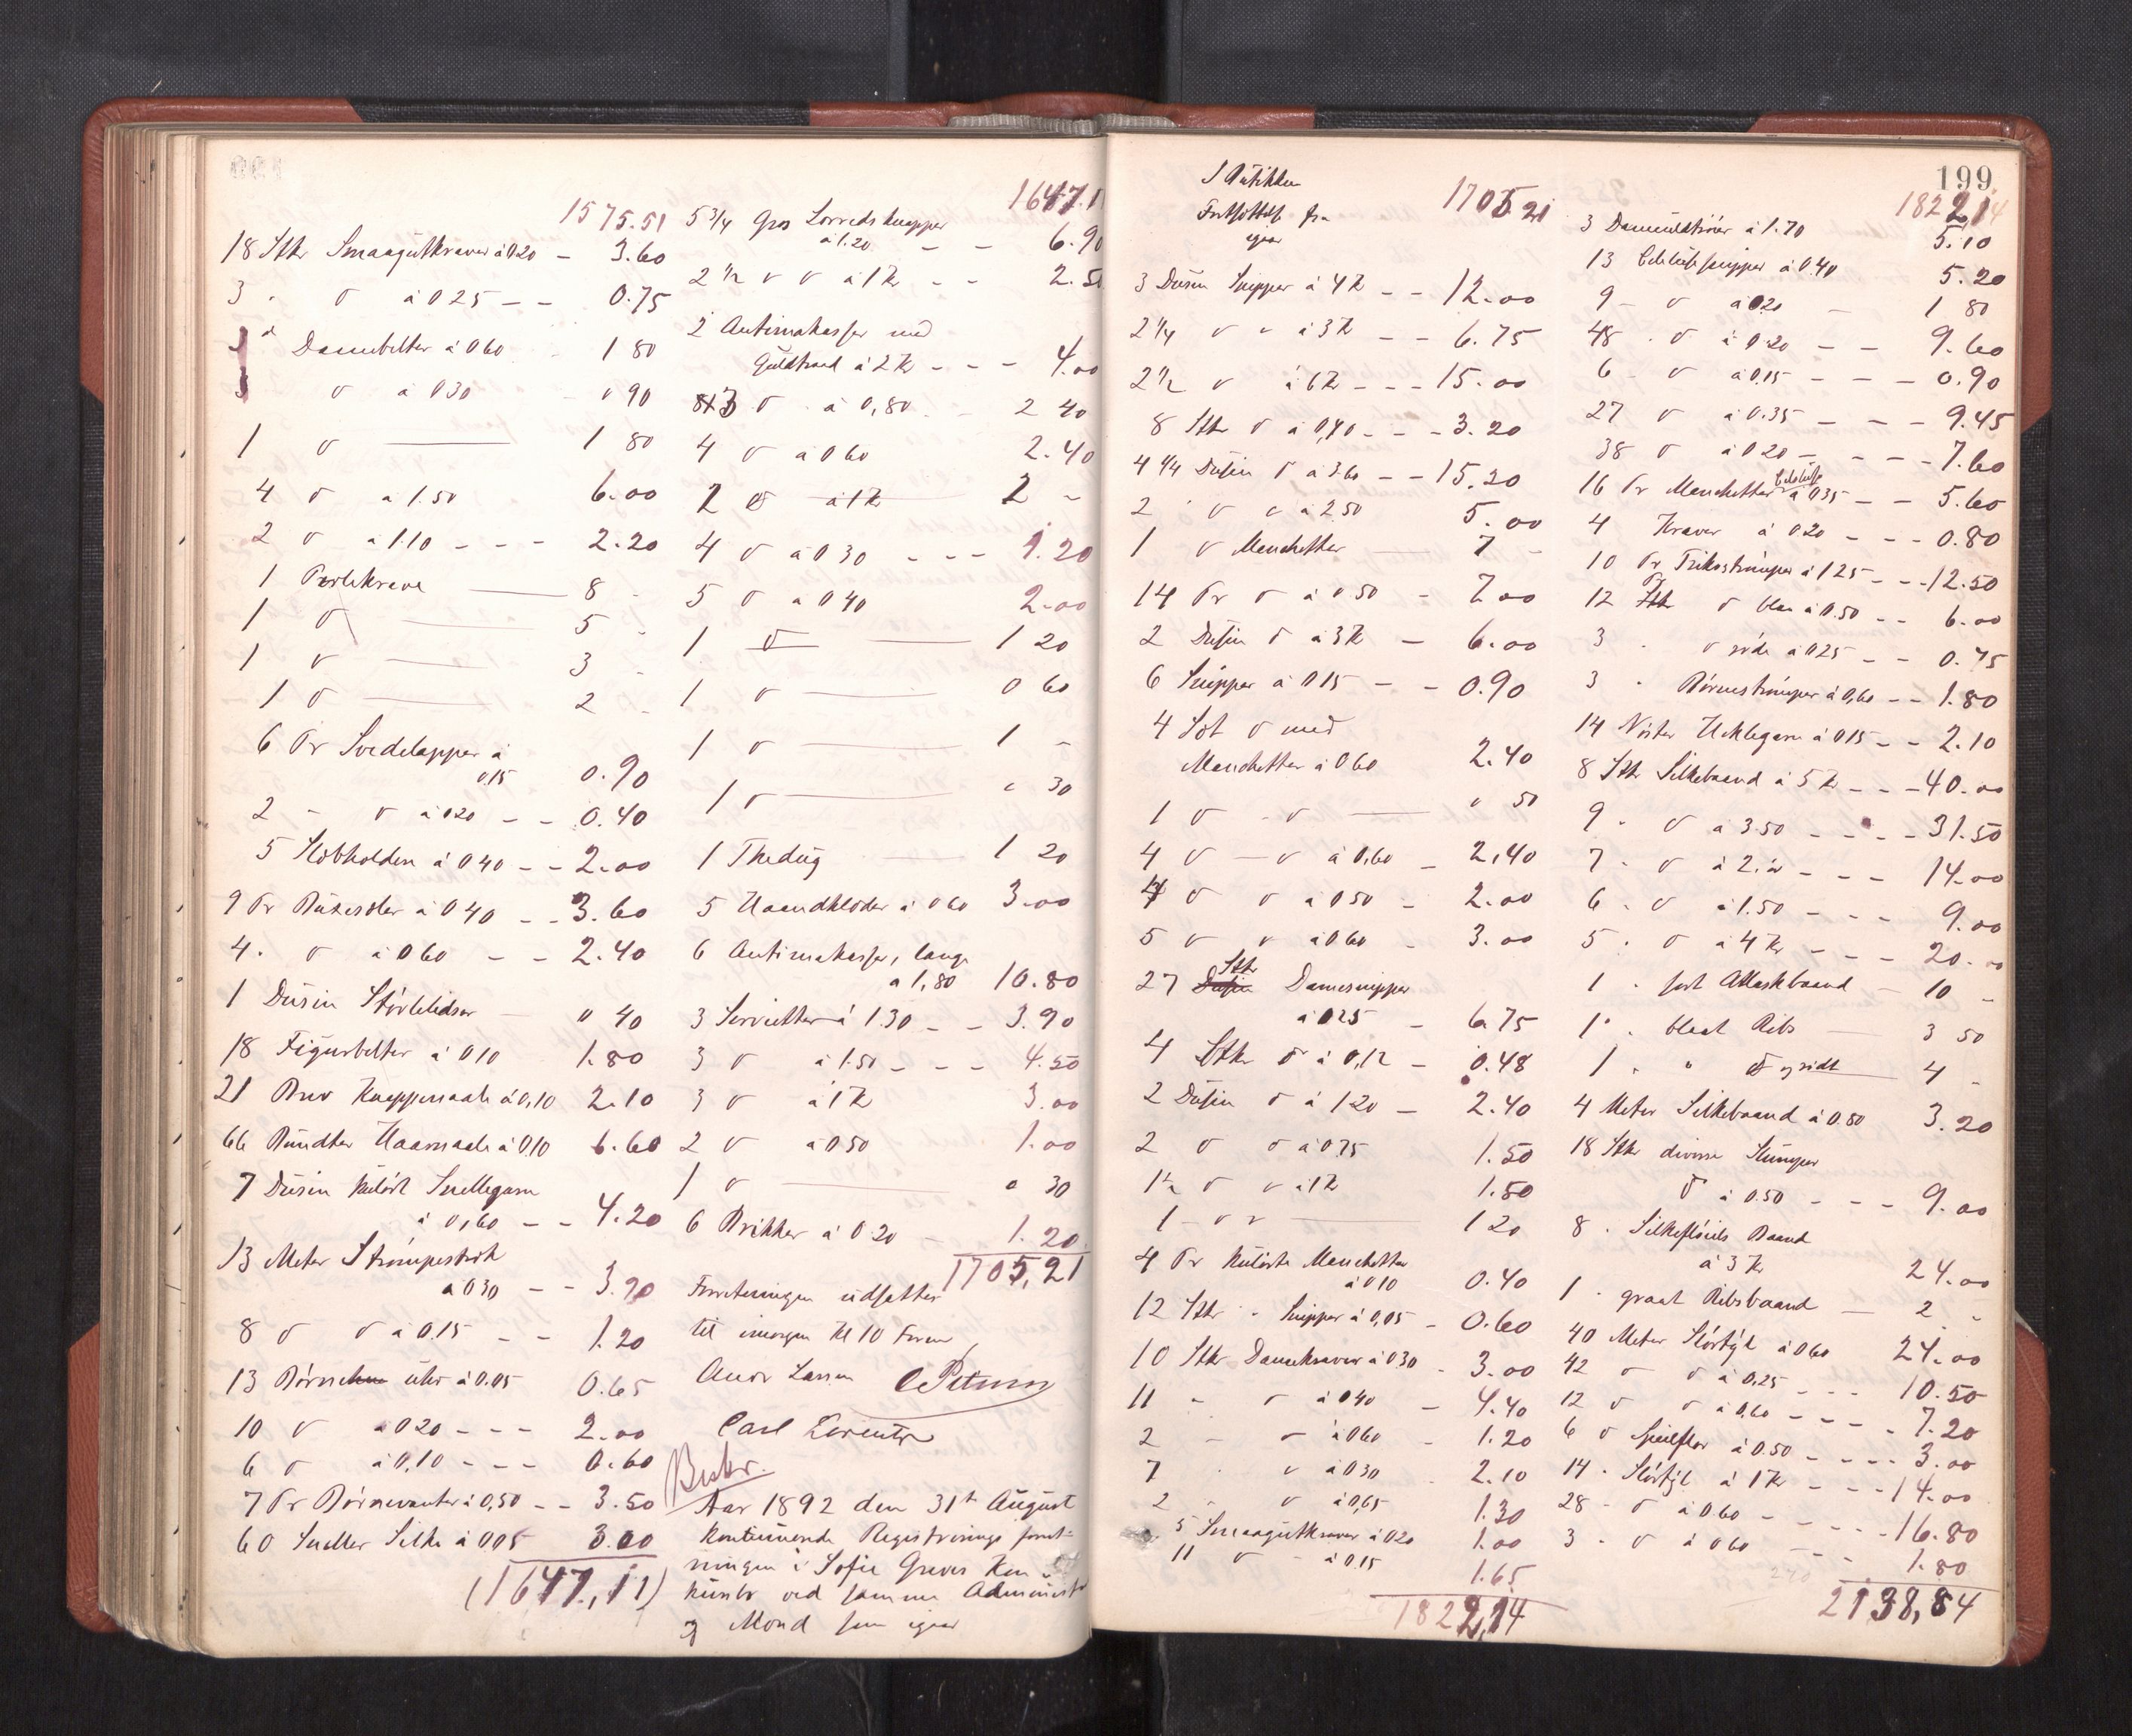 1575.51
18 Stkr Smaagutkraver à 0.20 – 3.60
3 " d à 0.25 – – 0.75
3 d Damebelter à 0.60 1 80
3 d à 0.30 " 90
1 d 1 80
4 d à 1.50 6.00
2 d à 1.10 – – – 2.20
1 Perlekrave 8 –
1 d 5 –
1 d 3 –
1 d 2 –
6 Pr Svedelapper à
0.15 0.90
2 – d à 0.20 – – 0.40
5 Slobholdere à 0.40 – – 2.00
9 Pr à 0.40 – – 3.60
4 " d à 0.60 – – 2.40
1 Dusin Störlelidser " 40
18 Figurbelter à 0.10 1.80
21 Brev Knappenaale à 0,10 2.10
66 Bundter Haarnaale à 0.10 6.60
7 Dusin kulört Snellegarn
à 0,60 – – 4.20
13 Meter Strimpestrik
à 0.30 – – 3.90
8 d d à 0.15 – – 1.20
13 Börne uhr à 0.05 0.65
10 d à 0.20 – – – 2.00
6 d à 0,10 – – – 0.60
7 Pr Börnevanter à 0,50 – – 3.50
60 Sneller Silke à 0.05 3.00
(1647,11)
1647.1
5 3/4 Gros Lorredsknapper
à 1.20 – – 6.90
2 1/2 d d à 1 Kr – – 2.5
2 Antimakasser med
Guldtraad à 2 Kr – – – 4.00
3 d à 0,80 – 2 40
4 d à 0.60 2.40
2 d à 1 Kr 2 –
4 d à 0.30 – – – 1.20
5 d à 0.40 2.00
1 d 1 20
1 d 0 60
1 d 1 –
1 d " 30
1 Thedug 1 20
5 Haandklæder à 0.60 3.00
6 Antimakasser, lange
à 1,80 10.80
3 Servietter à 1.30 – – 3.90
3 d à 1.50 – – – 4.50
3 d à 1 Kr 3.00
2 d à 0.50 1.00
1 d " 30
6 Brikker à 0.20 – 1.20
1705,21
Forretningen udsættes
til imorgen Kl 10 Form
Anor Larsen CPeturm
Carl Lorentz
Beskr.
Aar 1892 den 31te August
kontinuerede Registrerings forret-
ningen i Sofie Greves Kon-
kursbo ved samme Administr
og Mænd som igaar
199
I Butikken
Fortsættelse fra
igaar
1705.21
3 Dusin Snipper à 4 Kr – – 12.00
2 1/4 d d à 3 Kr – – 6.75
2 1/2 d à 6 Kr – – – 15.00
8 Stkr d à 0,40 – – – 3.20
4 1/4 Dusin d à 3.60 – – 15.20
2 " d d à 2.50 5.00
1 d Manchetter 7 –
14 Pr d à 0.50 – 7.00
2 Dusin d à 3 Kr – 6.00
6 Snipper à 0.15 – – 0.90
4 Sæt d med
Manchetter à 0.60 2.40
1 d – d " 50
4 d – d à 0,60 – 2,40
4 d d à 0.50 – 2.00
5 d d à 0.60 – 3.00
27 Stkr Damesnipper
à 0.25 – 6.75
4 Stkr d à 0,12 – 0.48
2 Dusin d à 1.20 – 2.40
2 d d à 0.75 1.50
1 1/2 d d à 1 Kr 1.50
1 – d d 1 20
4 Pr kulörte Manchetter
à 0.10 0.40
12 Stkr " Snipper à 0,05 – 0.60
10 Stkr Damekraver à 0.30 – 3.00
11 – d à 0.40 – 4.40
2 – d à 0.60 – 1.20
7 " d à 0.30 2.10
2 " d à 0,65 1.30
5 Smaagutkraver à 0.20 1.00
11 d – à 0.15 1.65
1822,14
1822.14
3 à 1.70 5.10
13 Celeluidsnipper à 0.40 5.20
9 – d à 0.20 – 1 80
48 – d à 0.20 – – 9.60
6 – d à 0.15 – – – 0.90
27 d à 0.35 – – – 9.45
38 d à 0.20 – – – – 7.60
16 Pr Manchetter à 0.35 – – 5.60
4 Kraver à 0.20 – – – 0.80
10 Pr Trikostrimper à 1.25 – – – 12.50
12 Pr d blaa à 0.50 – – 6.00
3 " d röde à 0.25 – – 0.75
3 " Börnestrimper à 0,60 – – 1.80
14 Nöster Heklegarn à 0.15 – – 2.10
8 Stkr Silkebaand à 5 Kr – – – 40.00
9 " d à 3.50 – – – – 31.50
7 " d à 2.00 – – – 14.00
6 " d à 1.50 – – – 9.00
5 " d à 4 Kr – – – 20.00
1 " sort Atlaskbaand – 10 –
1 " blaat Ribs 3 50
1 " " d 4 –
4 Meter Silkebaand à 0.80 3.20
18 Stkr diverse Stumper
d à 0.50 – – – 9.00
8 " Silkeflöiels Baand
à 3 Kr 24.00
1 " graat Ribsbaand – 2 –
40 Meter Slörtyl à 0.60 24.00
42 d d à 0,25 – – – 10.50
12 d d à 0,60 – – – – 7.20
6 d à 0.50 – – – – 3.00
14 " Slörtyl à 1 Kr – – – 14.00
28 – d à 0.60 – – – – 16.80
3 " d à 0.60 – – – 1.80
2138,84